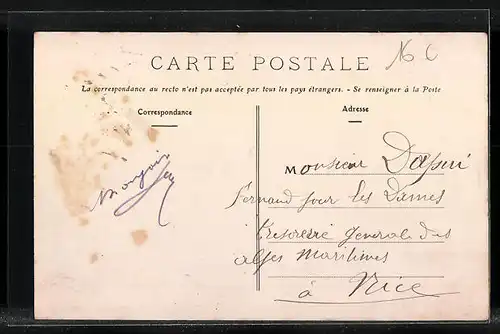 No C
CARTE POSTALE
La correspondance au recto n'est pas acceptée par tous les pays étrangers. - Se renseigner à la Poste
Correspondance
Adresse
Monsieur
Fernand pour les Dames
Tresorerie Generale des
alpes Maritimes
à Nice